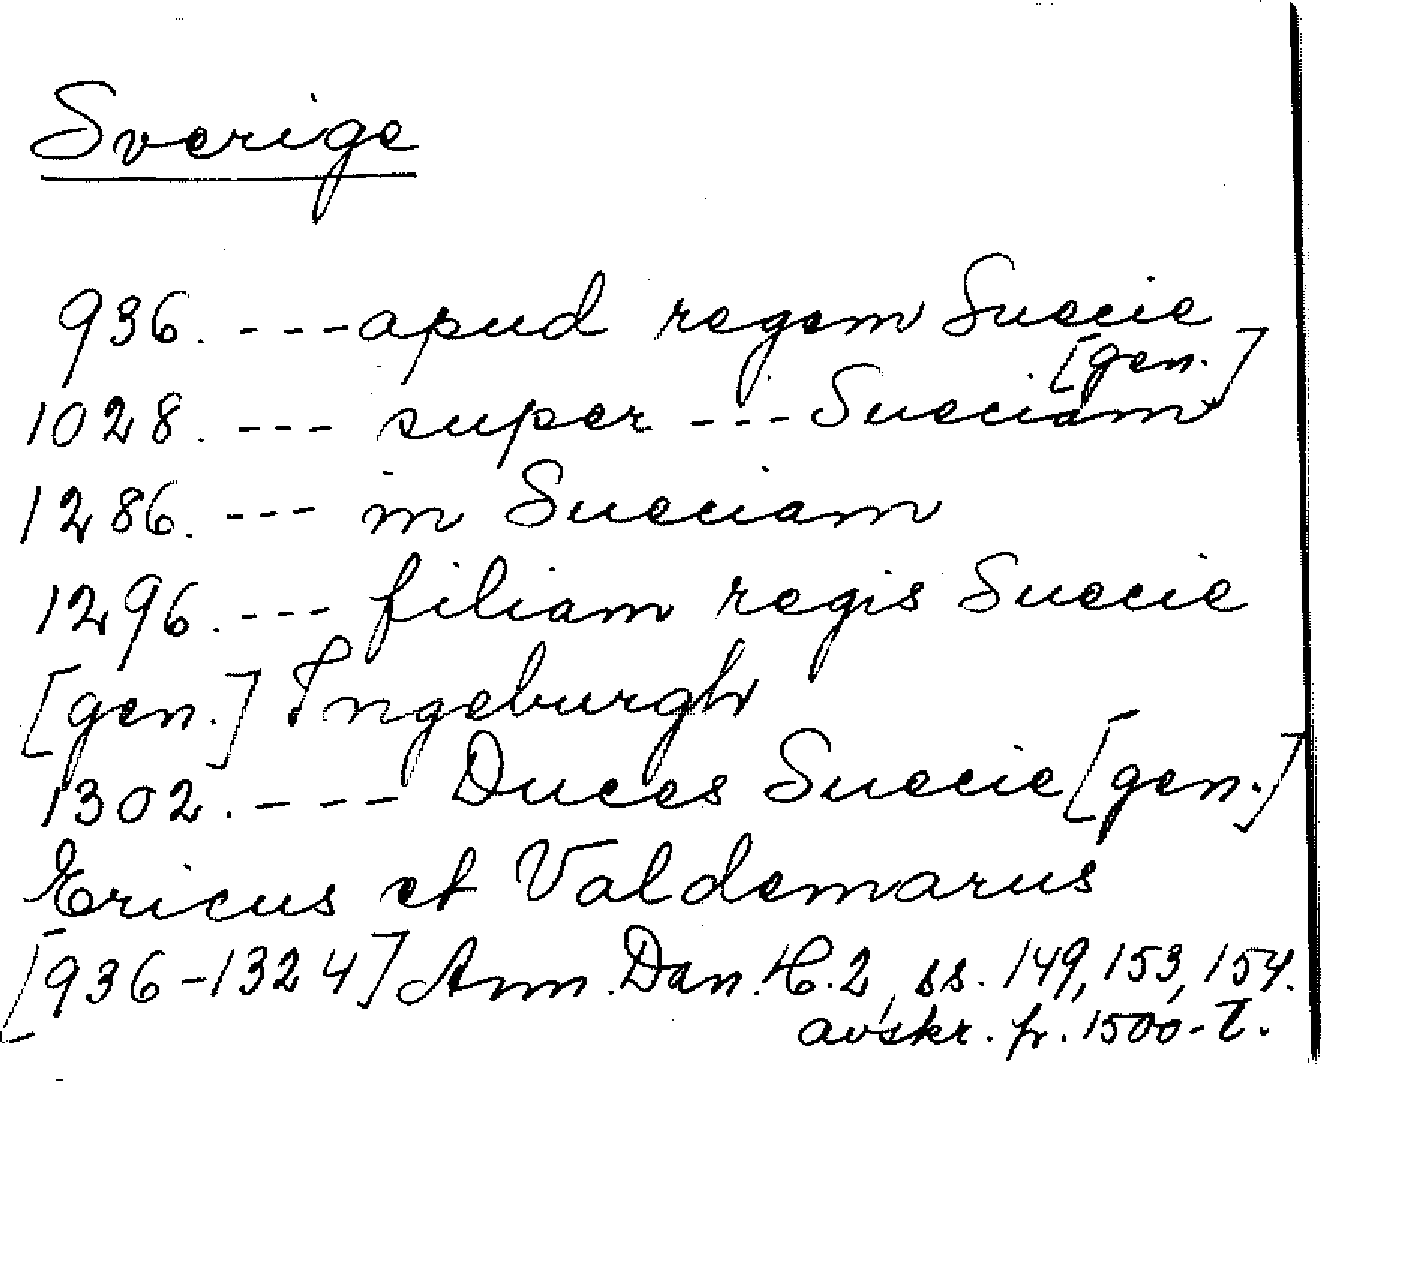 Sverige
936. --- apud regem Suecie
[gen.]
1028. --- super --- Sueciam
1286. --- in Sueciam
1296. --- filiam regis Suecie
[gen.] Ingeburgh
1302. --- Duces Suecie [gen.]
Ericus et Valdemarus
[936-1324] Ann. Dan. H. 2, ss. 149, 153, 154.
avskr. fr. 1500-t.